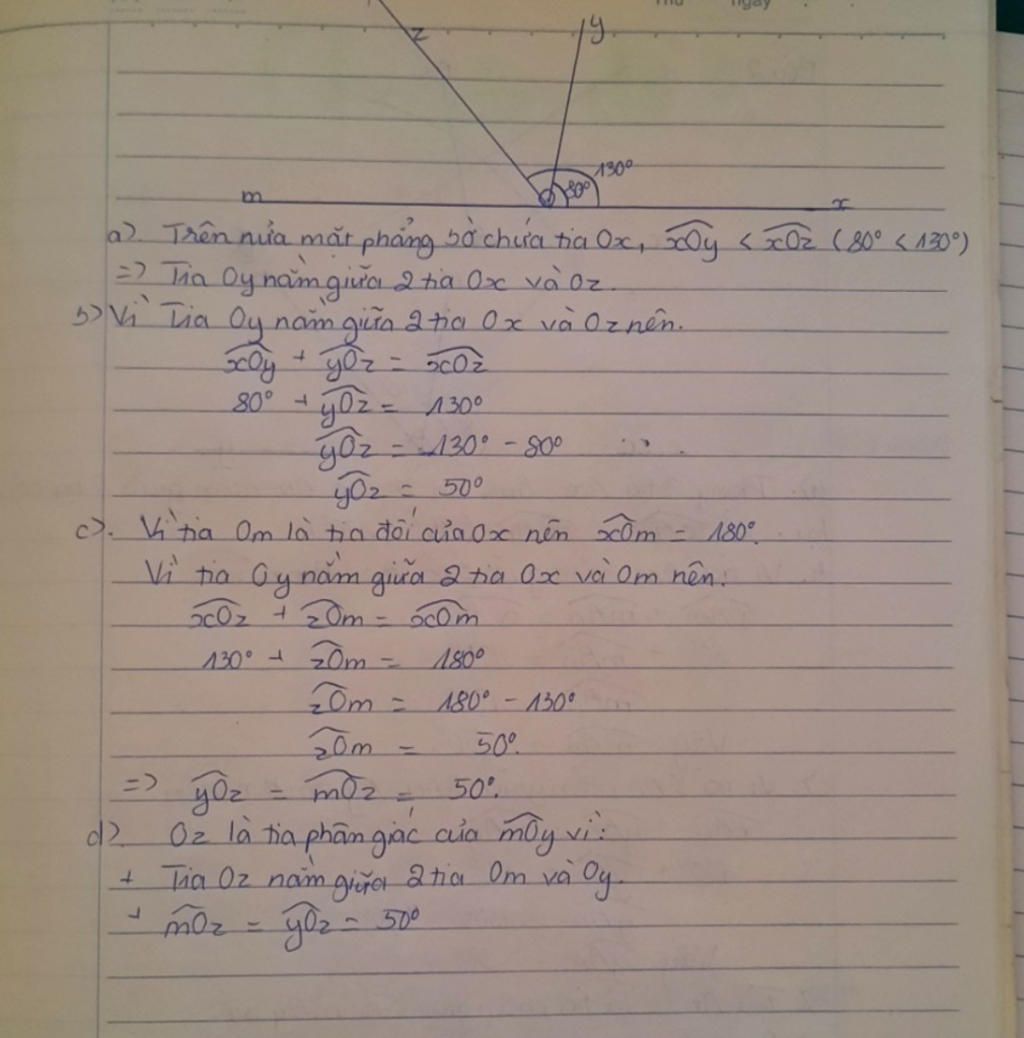 Thứ ngày
z
y
130°
80°
m
x
a). Trên nửa mặt phẳng bờ chứa tia Ox, xOy < xOz (80° < 130°)
=> Tia Oy nằm giữa 2 tia Ox và Oz.
b) Vì Tia Oy nằm giữa 2 tia Ox và Oz nên.
xOy + yOz = xOz
80° + yOz = 130°
yOz = 130° - 80°
yOz = 50°
c). Vì tia Om là tia đối của Ox nên xOm = 180°.
Vì tia Oy nằm giữa 2 tia Ox và Om nên:
xOz + zOm = xOm
130° + zOm = 180°
zOm = 180° - 130°
zOm = 50°.
=> yOz = mOz = 50°.
d). Oz là tia phân giác của mOy vì:
+ Tia Oz nằm giữa 2 tia Om và Oy.
+ mOz = yOz = 50°